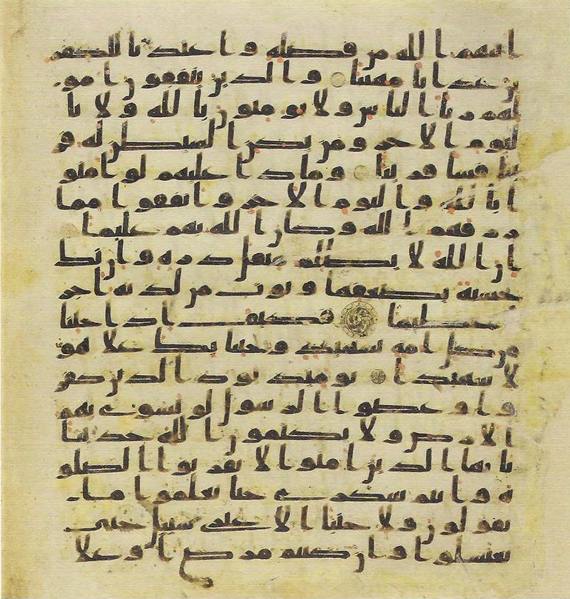 اتيهم الله من فضله و اعتدنا للكفر
ين عذابا مهينا و الذين ينفقون امو
لهم ريا الناس ولا يومنون بالله ولا با
ليوم الاخر ومن يكن الشيطن له قر
ينا فسا قرينا وماذا عليهم لو امنو
ا بالله واليوم الاخر وانفقوا مما
رزقهم الله وكان الله بهم عليما
ان الله لا يظلم مثقل ذره وان تك
حسنة يضعفها ويوت من لدنه اجر
ا عظيما فكيف اذا جينا
من كل امه بشهيد وجينا بك علا هو
لا شهيدا يوميذ يود الذين كفر
وا وعصوا الرسول لو تسوى بهم
الارض ولا يكتمون الله حديثا
يايها الذين امنوا لا تقربوا الصلو
ه وانتم سكرى حتا تعلموا ما
تقولون ولا جنبا الا عبري سبيل حتى
تغتسلوا وان كنتم مرضى او علا